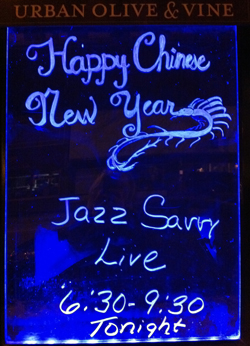 URBAN OLIVE & VINE
Happy Chinese
New Year
Jazz Savvy
Live
6:30-9:30
Tonight